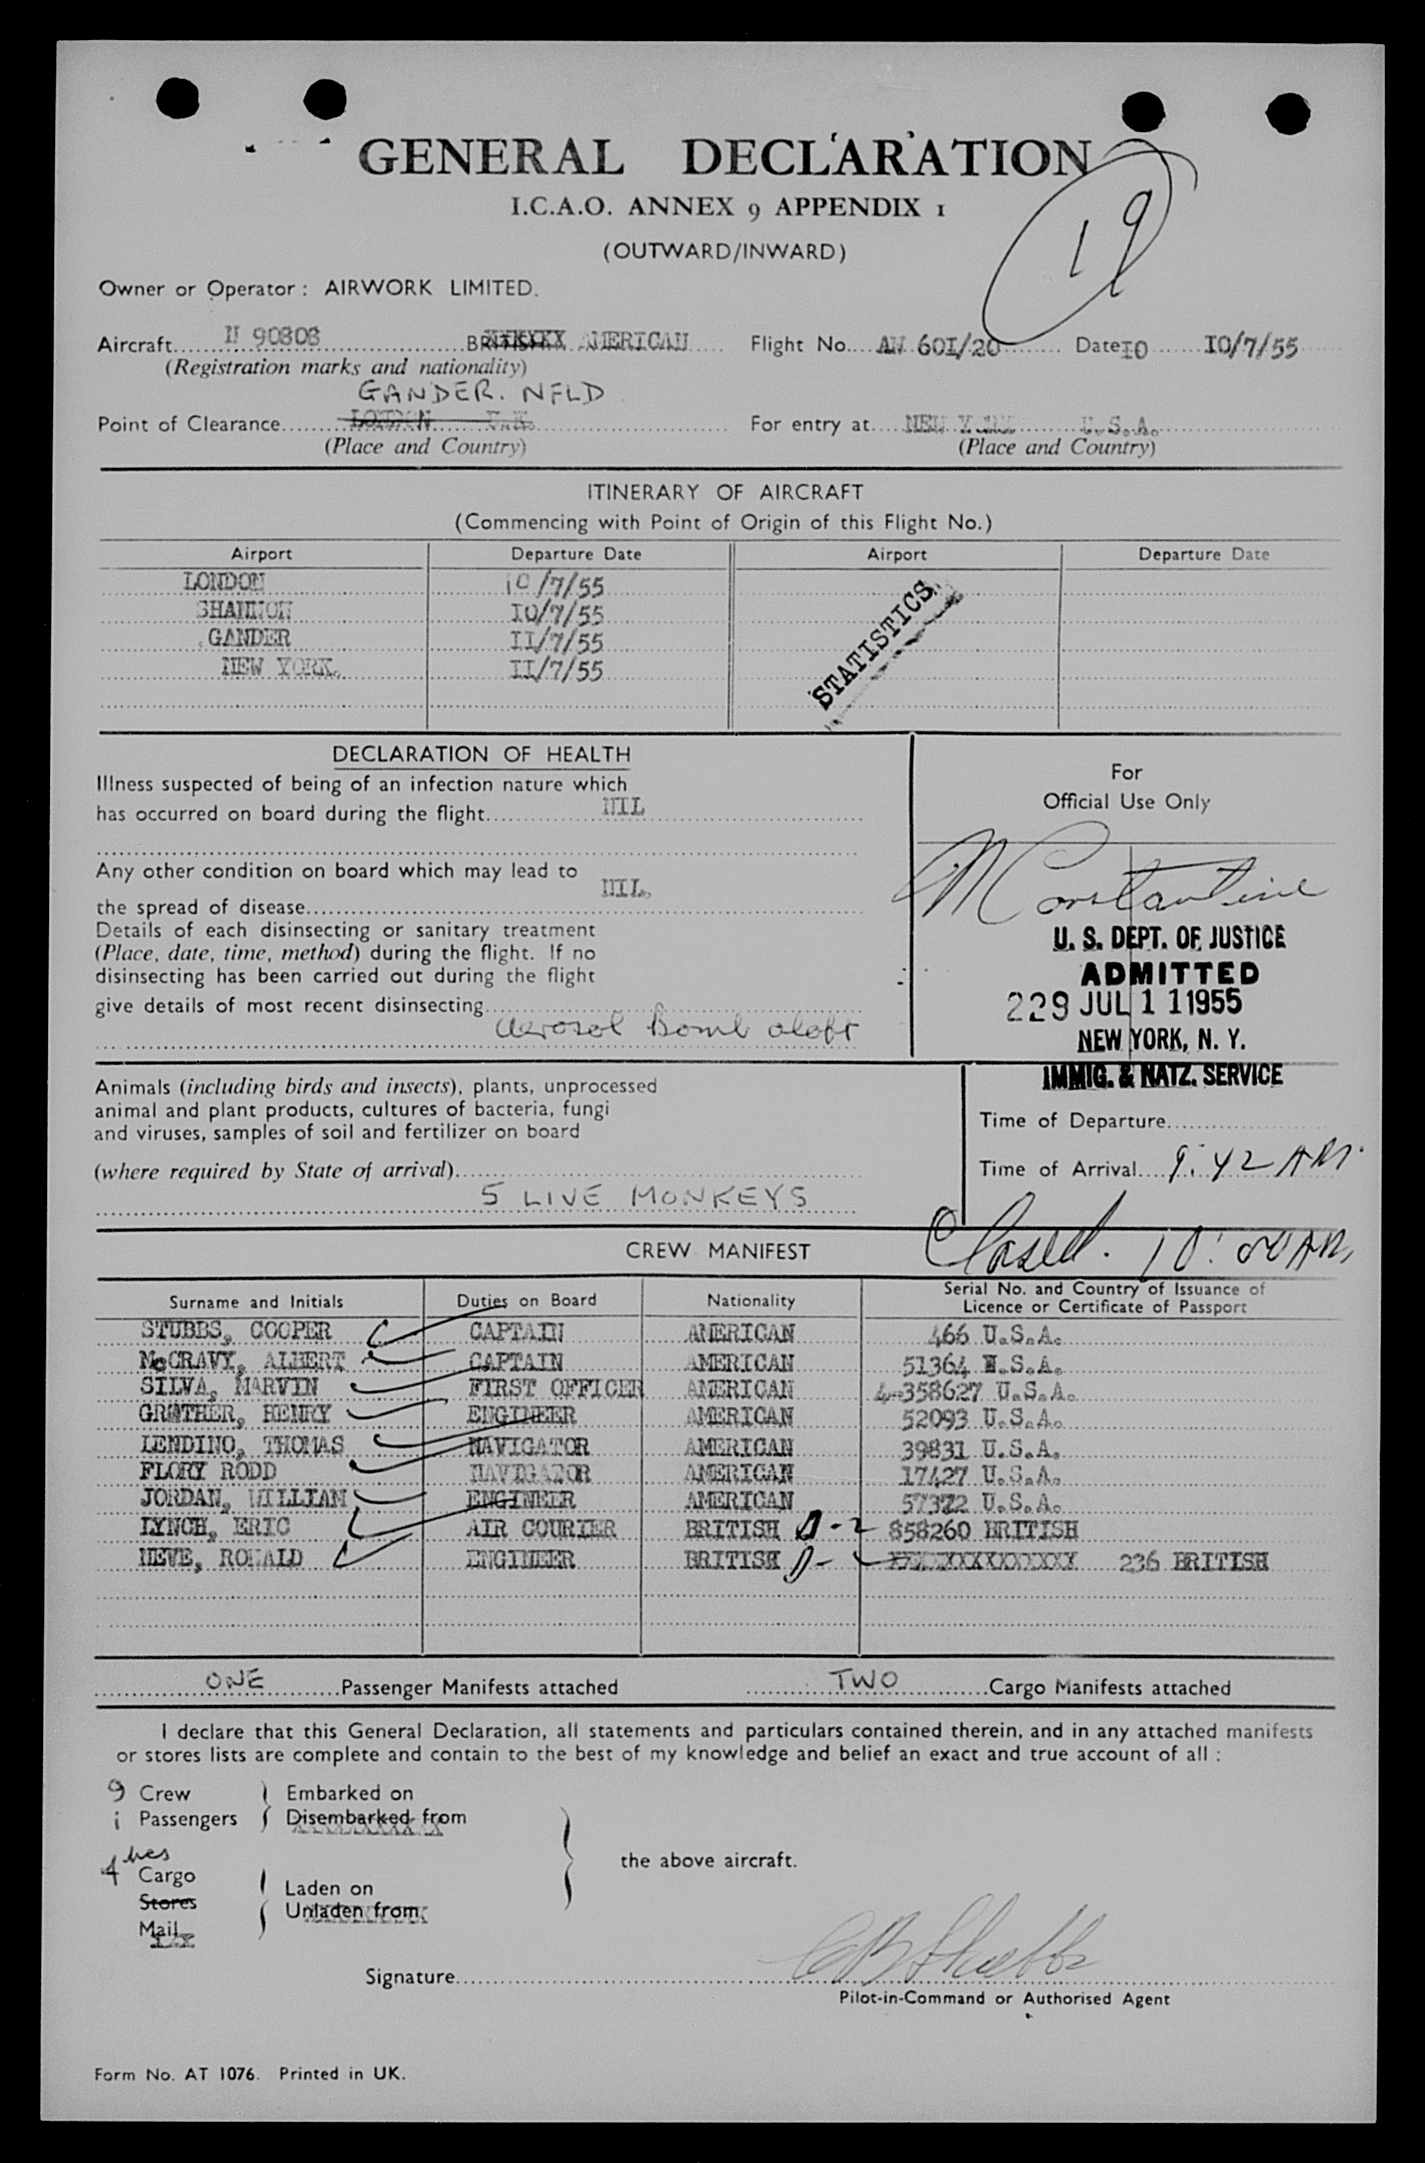 GENERAL DECLARATION
I.C.A.O. ANNEX 9 APPENDIX 1
19
(OUTWARD/INWARD)
Owner or Operator : AIRWORK LIMITED.
Aircraft N 90808 AMERICAN Flight No. AW 601/20 Date IO IO/7/55
(Registration marks and nationality)
GANDER. NFLD
Point of Clearance LONDON U.K. For entry at NEW YORK U.S.A.
(Place and Country) (Place and Country)
ITINERARY OF AIRCRAFT
(Commencing with Point of Origin of this Flight No.)
Airport Departure Date Airport Departure Date
LONDON 10/7/55
SHANNON IO/7/55
GANDER II/7/55
NEW YORK. II/7/55
STATISTICS
DECLARATION OF HEALTH
Illness suspected of being of an infection nature which
has occurred on board during the flight NIL
Any other condition on board which may lead to
the spread of disease NIL.
Details of each disinsecting or sanitary treatment
(Place, date, time, method) during the flight. If no
disinsecting has been carried out during the flight
give details of most recent disinsecting
Aerosol Bomb aloft
For
Official Use Only
M Constantine
U. S. DEPT. OF JUSTICE
ADMITTED
229 JUL 1 1 1955
NEW YORK, N. Y.
IMMIG. & NATZ. SERVICE
Animals (including birds and insects), plants, unprocessed
animal and plant products, cultures of bacteria, fungi
and viruses, samples of soil and fertilizer on board
(where required by State of arrival)
5 LIVE MONKEYS
Time of Departure
Time of Arrival 9:42 AM.
Closed. 10:00 AM,
CREW MANIFEST
Surname and Initials Duties on Board Nationality Serial No. and Country of Issuance of
Licence or Certificate of Passport
STUBBS, COOPER CAPTAIN AMERICAN 466 U.S.A.
McCRAVY, ALBERT CAPTAIN AMERICAN 51364 U.S.A.
SILVA, MARVIN FIRST OFFICER AMERICAN 358627 U.S.A.
GROTHER, HENRY ENGINEER AMERICAN 52093 U.S.A.
LENDINO, THOMAS NAVIGATOR AMERICAN 39831 U.S.A.
FLORY RODD NAVIGATOR AMERICAN 17427 U.S.A.
JORDAN, WILLIAM ENGINEER AMERICAN 57322 U.S.A.
LYNCH, ERIC AIR COURIER BRITISH D-2 858260 BRITISH
NEVE, RONALD ENGINEER BRITISH D-2 236 BRITISH
ONE Passenger Manifests attached TWO Cargo Manifests attached
I declare that this General Declaration, all statements and particulars contained therein, and in any attached manifests
or stores lists are complete and contain to the best of my knowledge and belief an exact and true account of all :
9 Crew Embarked on
1 Passengers Disembarked from
the above aircraft.
4
Cargo Laden on
Stores Unladen from
Mail
Signature C B Stubbs
Pilot-in-Command or Authorised Agent
Form No. AT 1076. Printed in UK.